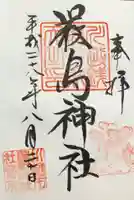 奉拝
厳島神社
平成二十八年八月二十日